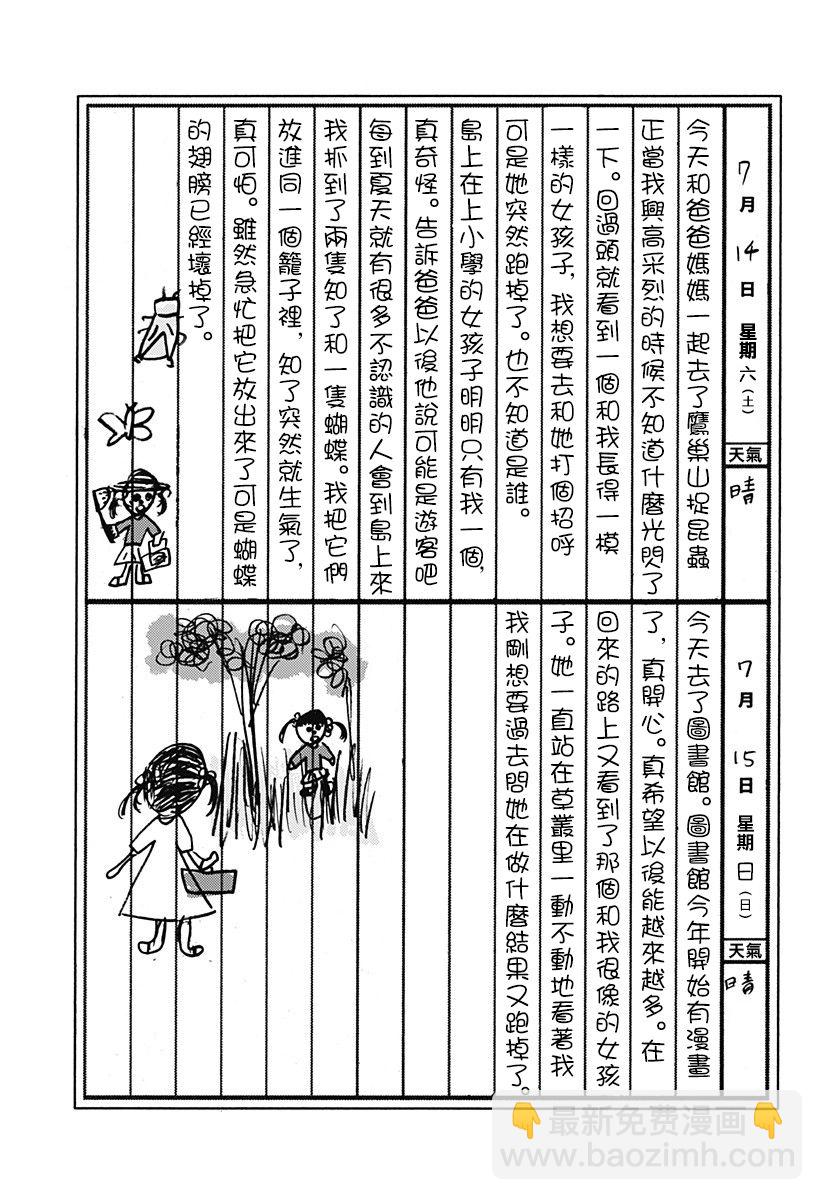 7月 14日 星期六(土)
天氣
晴
今天和爸爸媽媽一起去了鷹巢山捉昆蟲
正當我興高采烈的時候不知道什麼光閃了
一下。回過頭就看到一個和我長得一模
一樣的女孩子,我想要去和她打個招呼
可是她突然跑掉了。也不知道是誰。
島上在上小學的女孩子明明只有我一個,
真奇怪。告訴爸爸以後他說可能是遊客吧
每到夏天就有很多不認識的人會到島上來
我抓到了兩隻知了和一隻蝴蝶。我把它們
放進同一個籠子裡,知了突然就生氣了,
真可怕。雖然急忙把它放出來了可是蝴蝶
的翅膀已經壞掉了。
7月 15日 星期日(日)
天氣
晴
今天去了圖書館。圖書館今年開始有漫畫
了,真開心。真希望以後能越來越多。在
回來的路上又看到了那個和我很像的女孩
子。她一直站在草叢里一動不動地看著我
我剛想要過去問她在做什麼結果又跑掉了。
最新免费漫画
www.baozimh.com